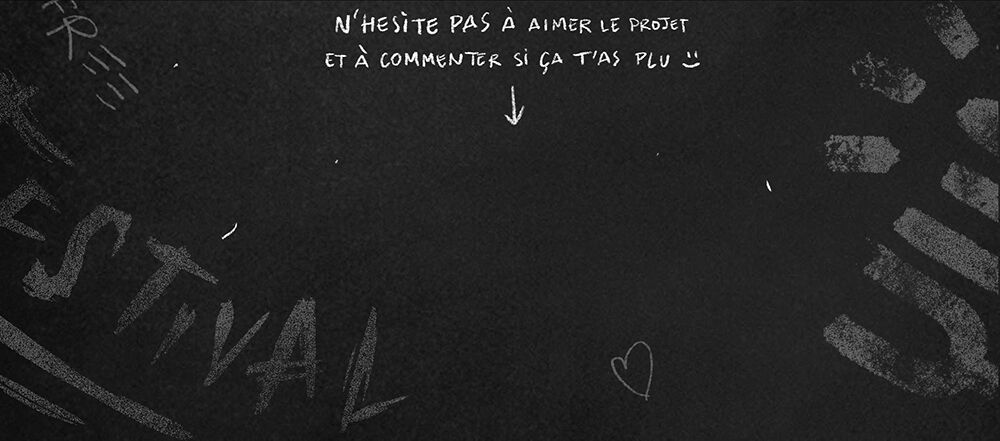 N'HESITE PAS À AIMER LE PROJET
ET À COMMENTER SI ÇA T'AS PLU
FREE
ESTIVAL